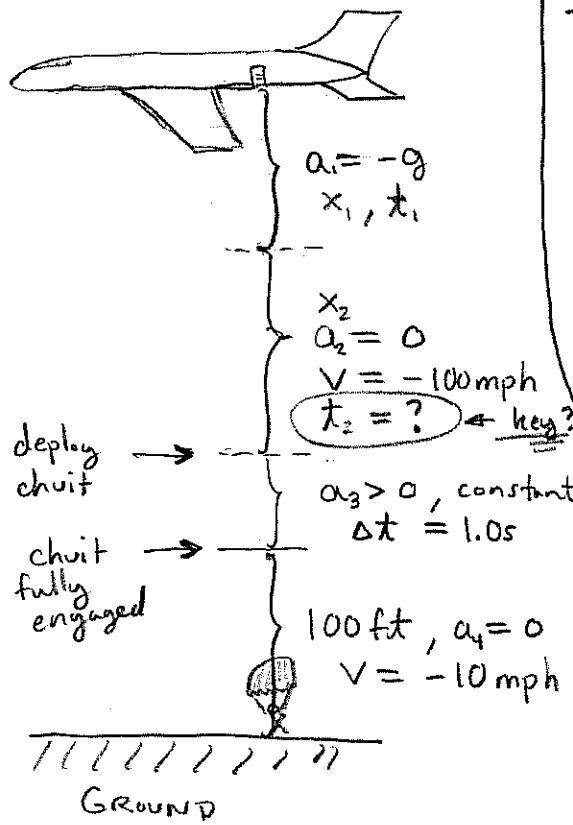 a₁ = -g
x₁, t₁
x₂
a₂ = 0
V = -100mph
t₂ = ? ← key?
deploy
chuit →
a₃ > 0, constant
Δt = 1.0s
chuit →
fully
engaged
100 ft, a₄ = 0
V = -10 mph
GROUND